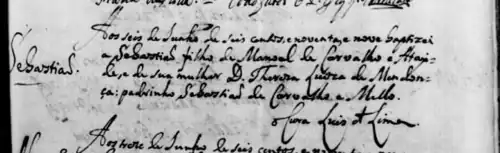 Sebastiaõ.
Aos seis de Junho de seis centos, e noventa, e nove baptizei
a Sebastiaõ filho de Manoel de Carvalho e Atai-
de, e de sua mulher D. Thereza Luiza de Mendon-
ça: padrinho, Sebastiaõ de Carvalho e Mello.
o Cura Luis
Aos treze de Junho de seis centos, e